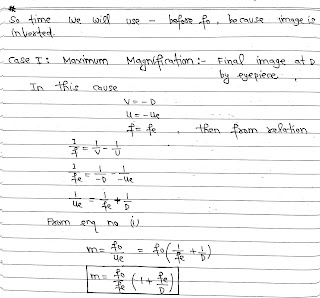 #
So time we will use - before fo, because image is
inverted.
Case I: Maximum Magnification:- Final image at D
by eyepiece.
In this case
V = -D
u = -ue
f = fe , then from relation
1/f = 1/v - 1/u
1/fe = 1/-D - 1/-ue
1/ue = 1/fe + 1/D
From eqn no (i)
m = fo/ue = fo(1/fe + 1/D)
m = fo/fe (1 + fe/D)